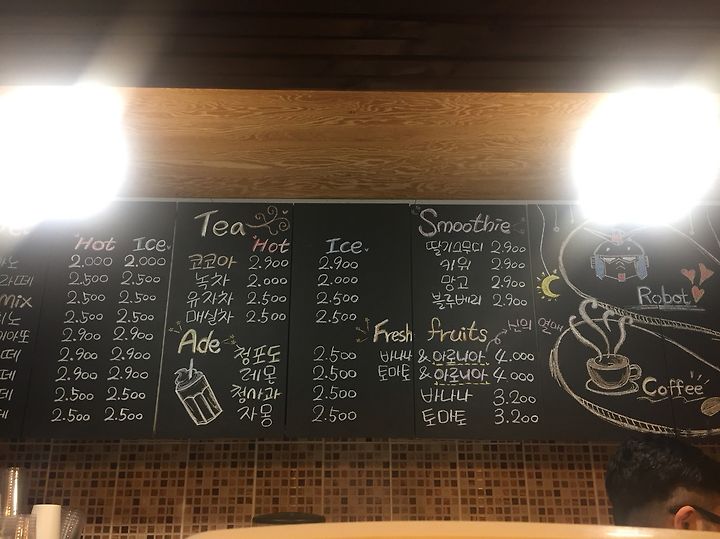 Hot Ice
노 2.000 2.000
라떼 2.500 2.500
mix 2.500 2.500
노 2.500 2.500
아또 2.900 2.900
떼 2.900 2.900
떼 2.900 2.900
떼 2.500 2.500
Tea
Hot Ice
코코아 2.900 2.900
녹차 2.000 2.000
유자차 2.500 2.500
매실차 2.500 2.500
Ade
청포도 2.500
레몬 2.500
청사과 2.500
자몽 2.500
Smoothie
딸기스무디 2.900
키위 2.900
망고 2.900
블루베리 2.900
Fresh fruits
신의 열매
바나나 & 아로니아 4.000
토마토 & 아로니아 4.000
바나나 3.200
토마토 3.200
Robot
Coffee